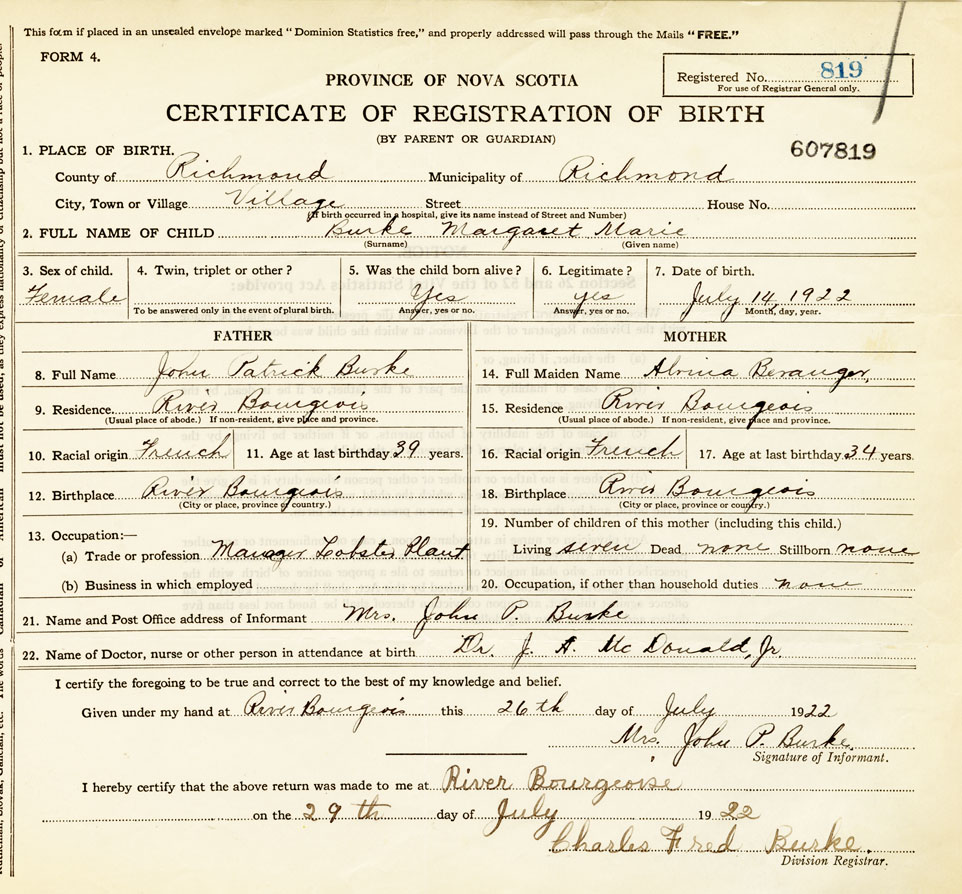 This form if placed in an unsealed envelope marked "Dominion Statistics free," and properly addressed will pass through the Mails "FREE."
FORM 4.
Registered No. 819
For use of Registrar General only.
PROVINCE OF NOVA SCOTIA
CERTIFICATE OF REGISTRATION OF BIRTH
(BY PARENT OR GUARDIAN)
607819
1. PLACE OF BIRTH.
County of Richmond Municipality of Richmond
City, Town or Village Village Street House No.
(If birth occurred in a hospital, give its name instead of Street and Number)
2. FULL NAME OF CHILD Burke Margaret Marie
(Surname) (Given name)
3. Sex of child. 4. Twin, triplet or other? 5. Was the child born alive? 6. Legitimate? 7. Date of birth.
Female Yes yes July 14, 1922
To be answered only in the event of plural birth. Answer, yes or no. Answer, yes or no. Month, day, year.
FATHER
8. Full Name John Patrick Burke
9. Residence River Bourgeois
(Usual place of abode.) If non-resident, give place and province.
10. Racial origin French 11. Age at last birthday 39 years.
12. Birthplace River Bourgeois
(City or place, province or country.)
13. Occupation:—
(a) Trade or profession Manager Lobster Plant
(b) Business in which employed
MOTHER
14. Full Maiden Name Beranger,
15. Residence River Bourgeois
(Usual place of abode.) If non-resident, give place and province.
16. Racial origin French 17. Age at last birthday 34 years.
18. Birthplace River Bourgeois
(City or place, province or country.)
19. Number of children of this mother (including this child.)
Living seven Dead none Stillborn none
20. Occupation, if other than household duties none
21. Name and Post Office address of Informant Mrs. John P. Burke
22. Name of Doctor, nurse or other person in attendance at birth Dr. J. A. McDonald, Jr.
I certify the foregoing to be true and correct to the best of my knowledge and belief.
Given under my hand at River Bourgeois this 26th day of July 1922
Mrs. John P. Burke
Signature of Informant.
I hereby certify that the above return was made to me at River Bourgeoise
on the 29th day of July 1922
Charles Fred Burke.
Division Registrar.